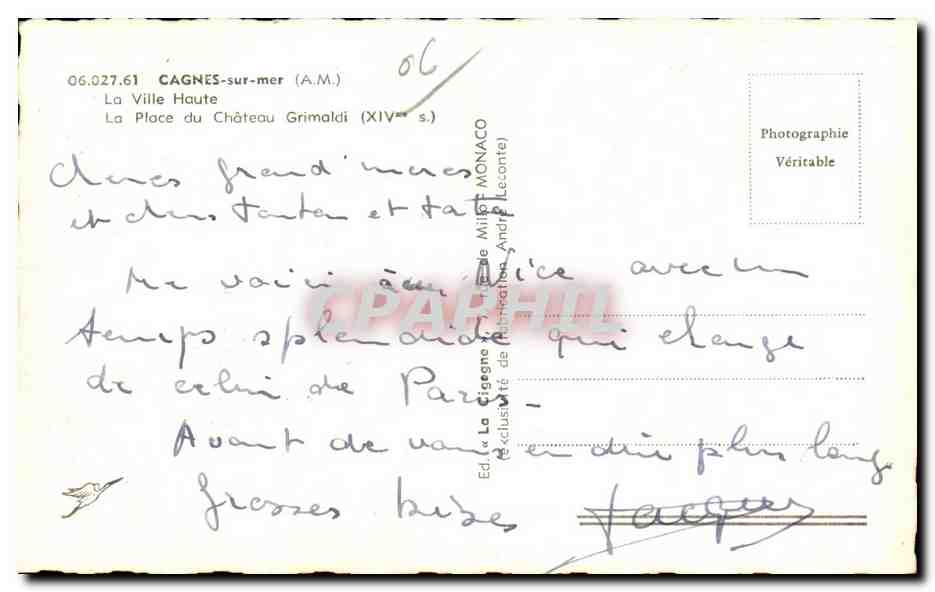 06
06.027.61 CAGNES-sur-mer (A.M.)
La Ville Haute
La Place du Château Grimaldi (XIVme s.)
Photographie
Véritable
Ed. « La Cigogne » rue de Millo MONACO
(exclusivité de fabrication André Leconte)
Chères grand'mères
et chers tonton et tata
Me voici à Nice avec un
temps splendide qui change
de celui de Paris -
Avant de vous en dire plus long
Grosses bises Jacques
CPARPHIL